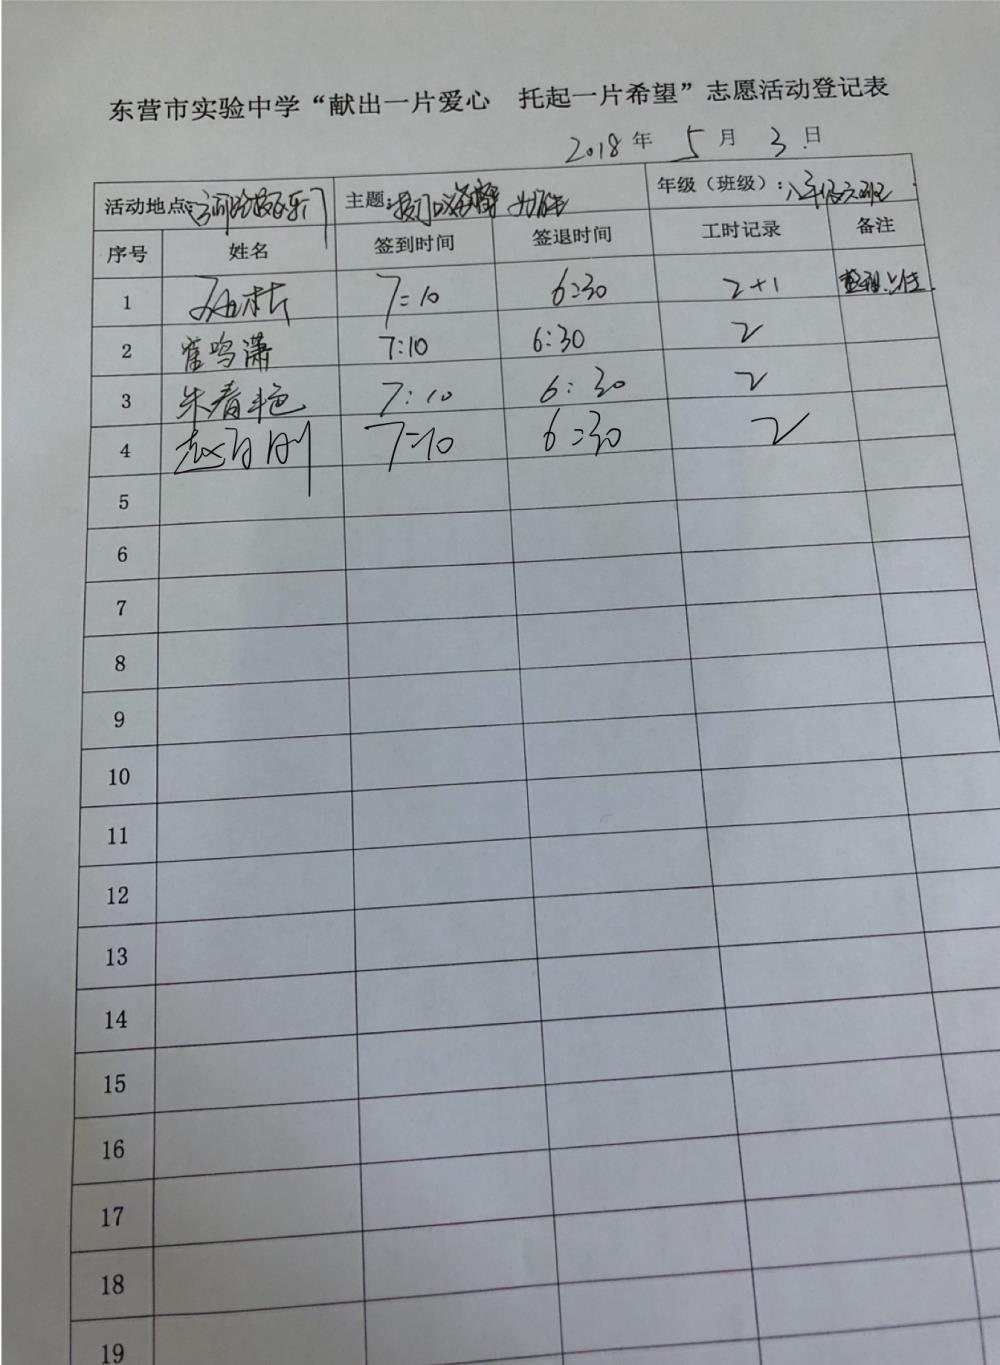 东营市实验中学“献出一片爱心　托起一片希望”志愿活动登记表
2018年 5月 3日
活动地点: 主题: 年级（班级）: 八年级六班
序号 姓名 签到时间 签退时间 工时记录 备注
1 7:10 6:30 2+1
2 霍鸣潇 7:10 6:30 2
3 朱春艳 7:10 6:30 2
4 赵月刚 7:10 6:30 2
5
6
7
8
9
10
11
12
13
14
15
16
17
18
19